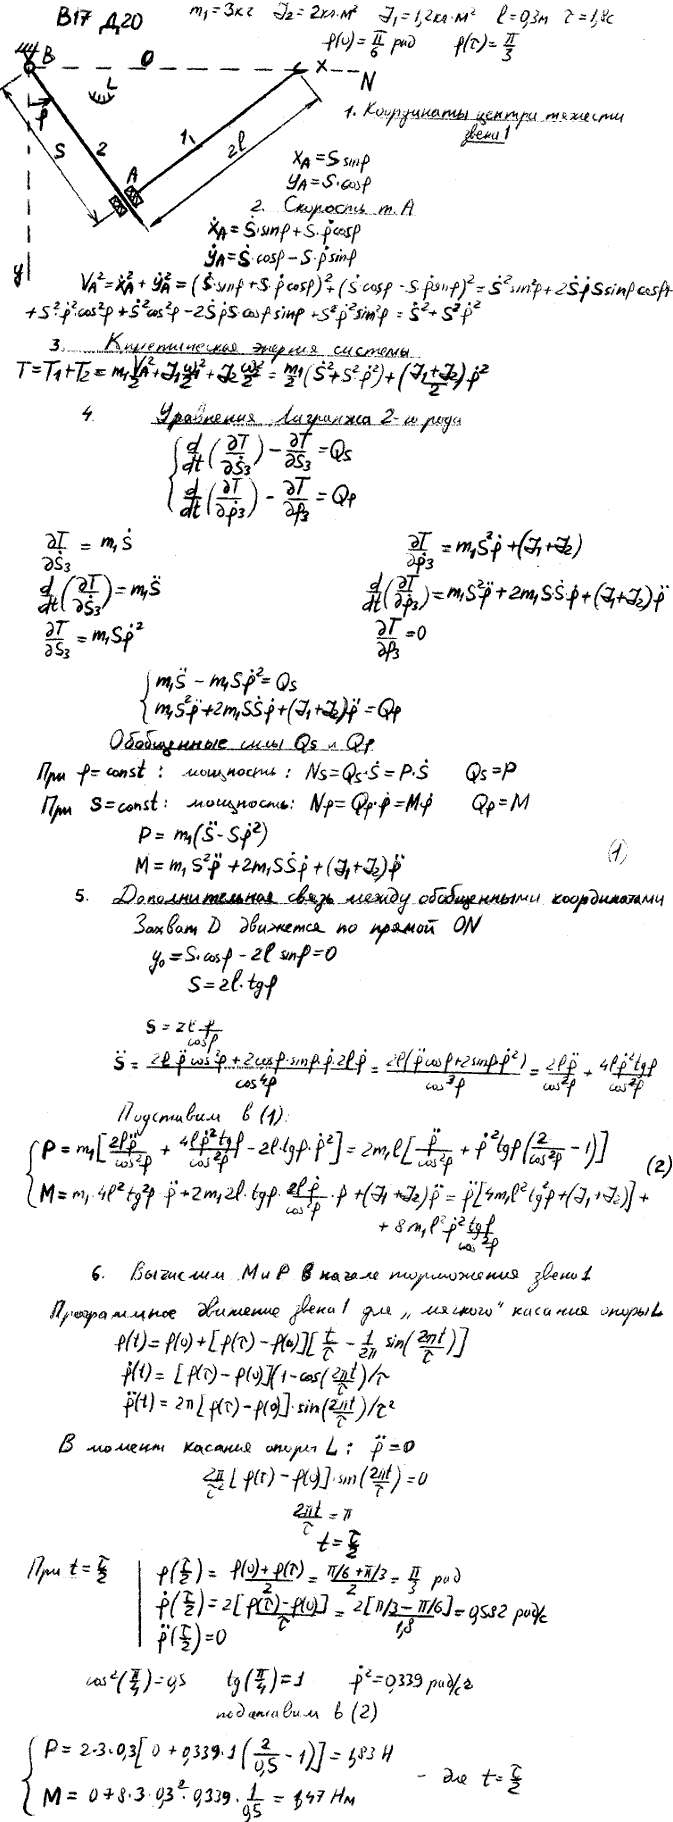 В17 Д20
m₁=3кг J₂=2кг·м² J₁=1,2кг·м² l=0,3м τ=1,8с
φ(0)=π/6 рад φ(τ)=π/3
B O X N
L
φ S 2 1 2l
A
y
1. Координаты центра тяжести
звена 1
X_A = S sinφ
y_A = S·cosφ
2. Скорость т. A
Ẋ_A = Ṡ·sinφ + S·φ̇ cosφ
ẏ_A = Ṡ·cosφ − S·φ̇ sinφ
V_A² = Ẋ_A² + ẏ_A² = (Ṡ·sinφ + S·φ̇ cosφ)² + (Ṡ·cosφ − S·φ̇ sinφ)² = Ṡ² sin²φ + 2Ṡφ̇S sinφ cosφ +
+ S²·φ̇²·cos²φ + Ṡ² cos²φ − 2Ṡφ̇S cosφ sinφ + S²φ̇² sin²φ = Ṡ² + S²φ̇²
3. Кинетическая энергия системы
T = T₁ + T₂ = m₁ V_A²/2 + J₁ ω²/2 + J₂ ω²/2 = m₁/2 (Ṡ² + S²φ̇²) + (J₁+J₂)/2 φ̇²
4. Уравнения Лагранжа 2-го рода
d/dt (∂T/∂Ṡ₃) − ∂T/∂S₃ = Q_S
d/dt (∂T/∂φ̇₃) − ∂T/∂φ₃ = Q_φ
∂T/∂Ṡ₃ = m₁Ṡ ∂T/∂φ̇₃ = m₁S²φ̇ + (J₁+J₂)
d/dt (∂T/∂Ṡ₃) = m₁S̈ d/dt (∂T/∂φ̇₃) = m₁S²φ̈ + 2m₁SṠφ̇ + (J₁+J₂)φ̈
∂T/∂S₃ = m₁Sφ̇² ∂T/∂φ₃ = 0
m₁S̈ − m₁Sφ̇² = Q_S
m₁S²φ̈ + 2m₁SṠφ̇ + (J₁+J₂)φ̈ = Q_φ
Обобщенные силы Q_S и Q_φ
При φ=const: мощность: N_S = Q_S·Ṡ = P·Ṡ Q_S = P
При S=const: мощность: N_φ = Q_φ·φ̇ = Mφ̇ Q_φ = M
P = m₁(S̈ − Sφ̇²)
M = m₁S²φ̈ + 2m₁SṠφ̇ + (J₁+J₂)φ̈ (1)
5. Дополнительная связь между обобщенными координатами
Захват D движется по прямой ON
y₀ = S·cosφ − 2l sinφ = 0
S = 2l·tgφ
Ṡ = 2l φ̇/cos²φ
S̈ = (2l·φ̈ cos²φ + 2cosφ·sinφ·φ̇·2lφ̇)/cos⁴φ = 2l(φ̈ cosφ + 2sinφ·φ̇²)/cos³φ = 2lφ̈/cos²φ + 4lφ̇² tgφ/cos²φ
Подставим в (1):
P = m₁[2lφ̈/cos²φ + 4lφ̇² tgφ/cos²φ − 2l·tgφ·φ̇²] = 2m₁l[φ̈/cos²φ + φ̇² tgφ(2/cos²φ − 1)]
M = m₁·4l² tg²φ·φ̈ + 2m₁2l·tgφ·2lφ̇/cos²φ·φ + (J₁+J₂)φ̈ = φ̈[4m₁l² tg²φ + (J₁+J₂)] + (2)
+ 8m₁l²φ̇² tgφ/cos²φ
6. Вычислим M и P в начале торможения звена 1
Программное движение звена 1 для „мягкого" касания опоры L
φ(t) = φ(0) + [φ(τ) − φ(0)][t/τ − 1/2π sin(2πt/τ)]
φ̇(t) = [φ(τ) − φ(0)](1 − cos(2πt/τ))/τ
φ̈(t) = 2π[φ(τ) − φ(0)]·sin(2πt/τ)/τ²
В момент касания опоры L: φ̈ = 0
2π/τ² [φ(τ) − φ(0)]·sin(2πt/τ) = 0
2πt/τ = π
t = τ/2
При t = τ/2 φ(τ/2) = (φ(0)+φ(τ))/2 = (π/6+π/3)/2 = π/3 рад
φ̇(τ/2) = 2[φ(τ)−φ(0)]/τ = 2[π/3−π/6]/1,8 = 0,582 рад/с
φ̈(τ/2) = 0
cos²(π/4) = 0,5 tg(π/4) = 1 φ̇² = 0,339 рад/с²
подставим в (2)
P = 2·3·0,3[0 + 0,339·1(2/0,5 − 1)] = 1,83 Н
M = 0 + 8·3·0,3²·0,339·1/0,5 = 1,47 Нм − для t = τ/2